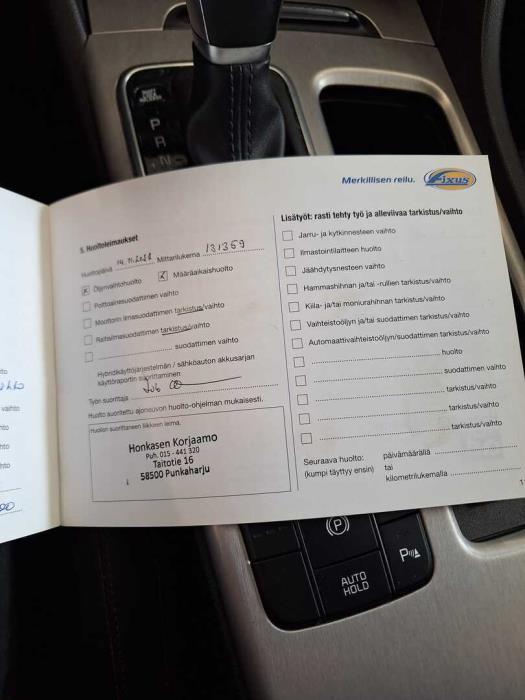 PARK RELEASE
P
R
N
Merkillisen reilu. Fixus
5. Huoltoleimaukset
Huoltopäivä 14.11.2022 Mittarilukema 131369
x Öljynvaihtohuolto x Määräaikaishuolto
Polttoainesuodattimen vaihto
Moottorin ilmasuodattimen tarkistus/vaihto
Raitisilmasuodattimen tarkistus/vaihto
suodattimen vaihto
Hybridikäyttöjärjestelmän / sähköauton akkusarjan
käyttöraportin suorittaminen
Työn suorittaja
Huolto suoritettu ajoneuvon huolto-ohjelman mukaisesti.
Huollon suorittaneen liikkeen leima.
Honkasen Korjaamo
Puh. 015 - 441 320
Taitotie 16
58500 Punkaharju
Lisätyöt: rasti tehty työ ja alleviivaa tarkistus/vaihto
Jarru- ja kytkinnesteen vaihto
Ilmastointilaitteen huolto
Jäähdytysnesteen vaihto
Hammashihnan ja/tai -rullien tarkistus/vaihto
Kiila- ja/tai moniurahihnan tarkistus/vaihto
Vaihteistoöljyn ja/tai suodattimen tarkistus/vaihto
Automaattivaihteistoöljyn/suodattimen tarkistus/vaihto
huolto
suodattimen vaihto
tarkistus/vaihto
tarkistus/vaihto
tarkistus/vaihto
Seuraava huolto: päivämäärällä
(kumpi täyttyy ensin) tai
kilometrilukemalla
vaihto
P
P
AUTO
HOLD